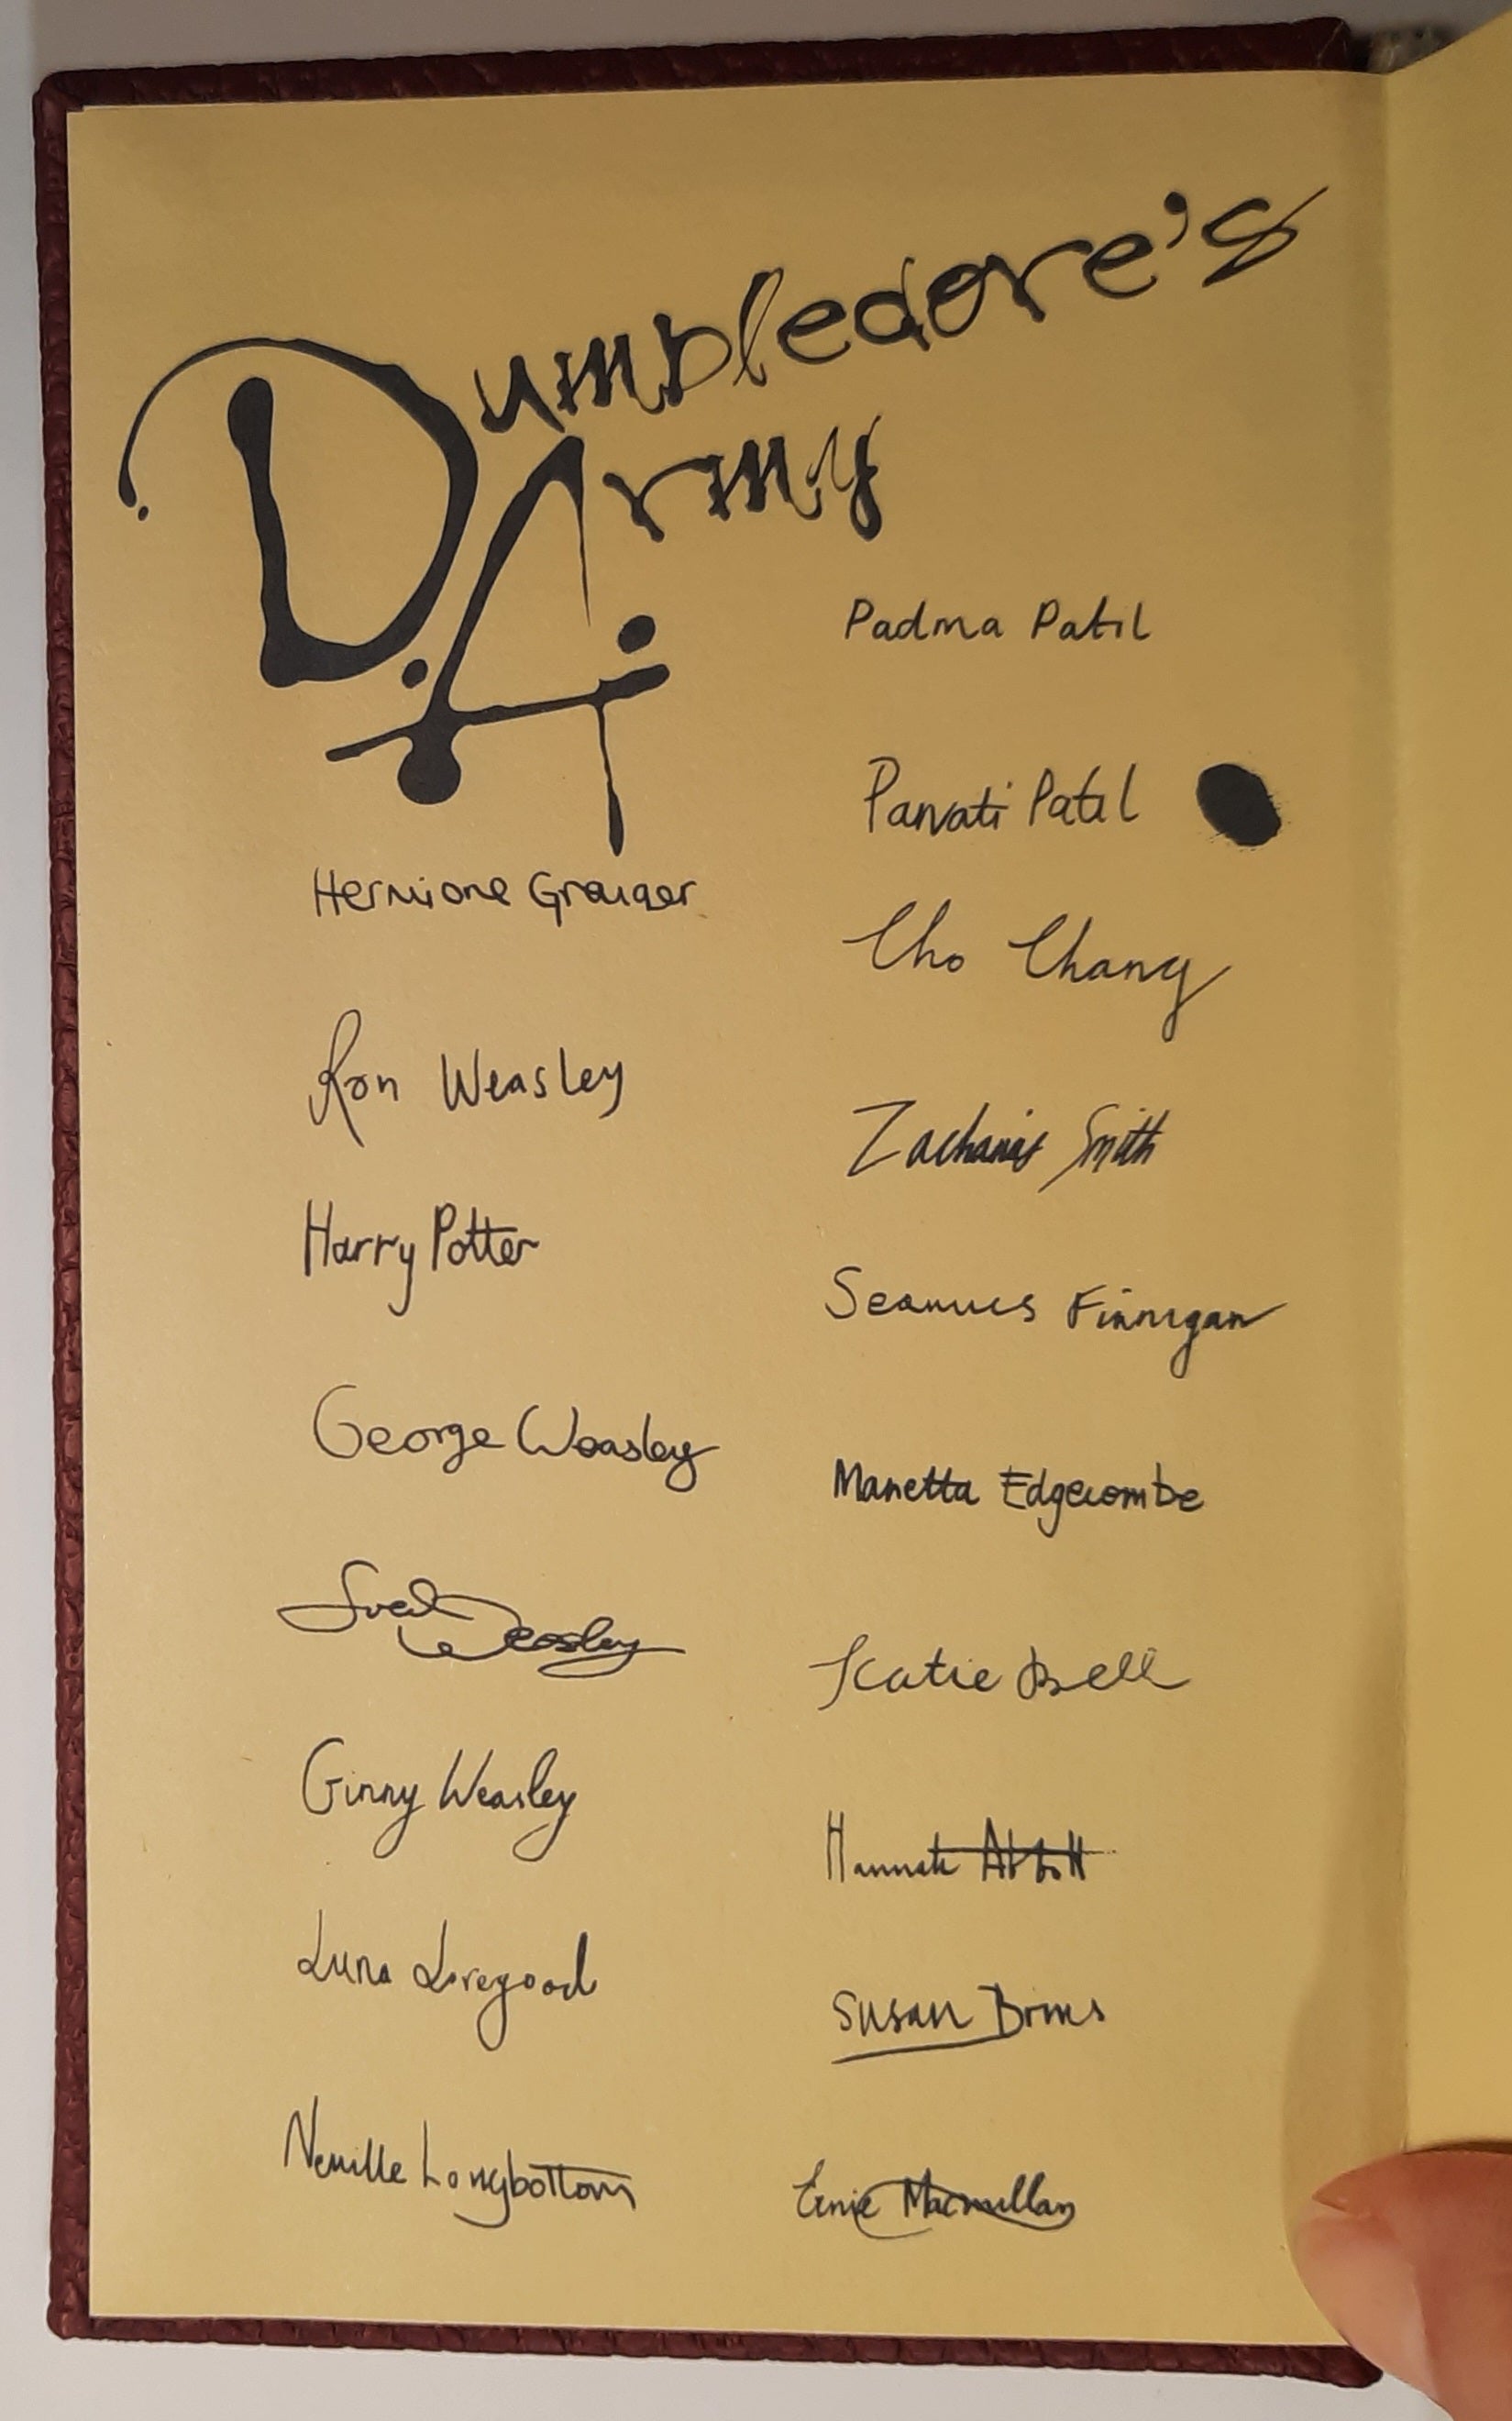 Dumbledore's
Army
Hermione Granger
Ron Weasley
Harry Potter
George Weasley
Fred Weasley
Ginny Weasley
Luna Lovegood
Neville Longbottom
Padma Patil
Parvati Patil
Cho Chang
Zacharias Smith
Seamus Finnigan
Marietta Edgecombe
Katie Bell
Hannah Abbott
Susan Bones
Ernie Macmillan